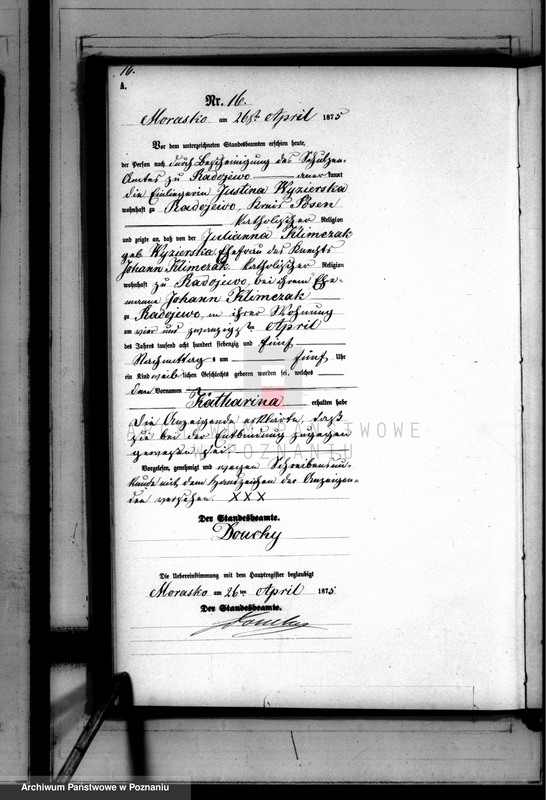 16.
A.
Nr. 16.
Morasko am 26st April 1875
Vor dem unterzeichneten Standesbeamten erschien heute,
der Person nach durch Bescheinigung des Schulzen-
Amtes zu Radojewo anerkannt
die Einliegerin Justina Wyzierska
wohnhaft zu Radojewo, Kreis Posen
katholischer Religion
und zeigte an, daß von der Julianna Klimczak
geb Wyzierska Ehefrau des Knechts
Johann Klimczak katholischer Religion
wohnhaft zu Radojewo, bei ihrem Ehe-
manne Johann Klimczak
zu Radojewo, in ihrer Wohnung
am vier und zwanzigsten April
des Jahres tausend acht hundert siebenzig und fünf
Nachmittags um fünf Uhr
ein Kind weiblichen Geschlechts geboren worden sei, welches
den Vornamen
Katharina erhalten habe
Die Anzeigende erklärte, daß
sie bei der Entbindung zugegen
gewesen sei.
Vorgelesen, genehmigt und wegen Schreibensun-
kunde mit dem Handzeichen der Anzeigen-
den versehen. XXX
Der Standesbeamte.
Douchy
Die Uebereinstimmung mit dem Hauptregister beglaubigt
Morasko am 26ten April 1875
Der Standesbeamte.
ARCHIWUM PAŃSTWOWE
W POZNANIU
Archiwum Państwowe w Poznaniu